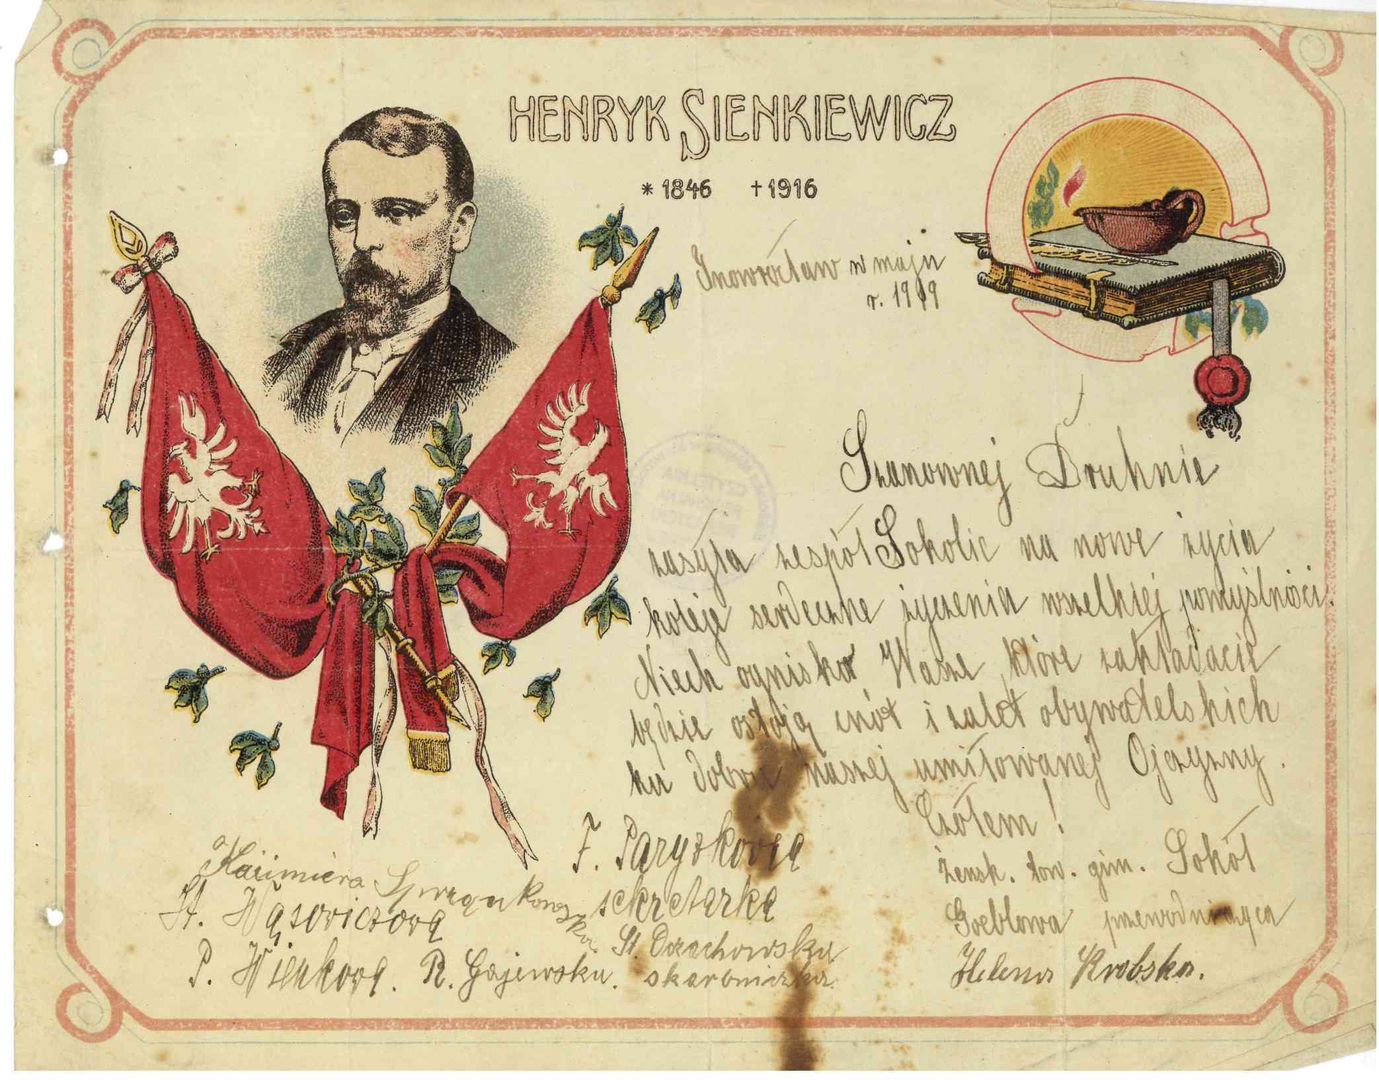 HENRYK SIENKIEWICZ
* 1846 † 1916
Inowrocław w maju
r. 1919
Szanownej Druhnie
zasyła zespół Sokolic na nowe życia
koleje serdeczne życzenia wszelkiej pomyślności.
Niech ognisko Wasze, które zakładacie
będzie ostoją cnót i zalet obywatelskich
ku dobru naszej umiłowanej Ojczyzny.
Czołem!
Żensk. tow. gim. Sokół
Greblowa przewodnicząca
Helena Krobska.
F. Paryskowa
sekretarka
St. Orzechowska
skarbniczka
Kazimiera
St. Wąsowiczowa
P. Wienkowa. R. Gajewska.
CZYTELNIA